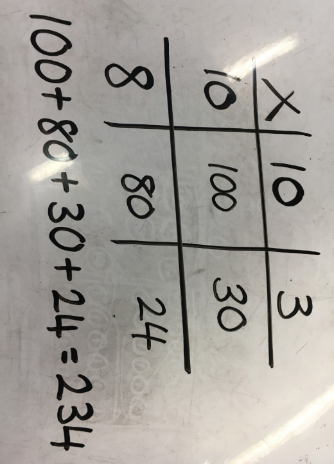 X 10 3
10 100 30
8 80 24
100+80+30+24=234